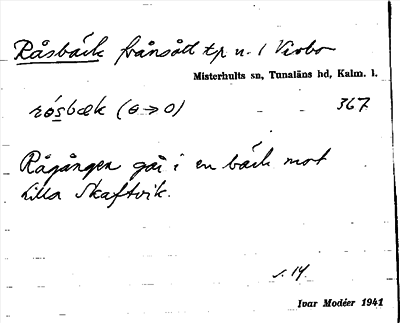 Råsbäck frånsått tp n. 1 Virbo
Misterhults sn, Tunaläns hd, Kalm. l.
råsbæk (ɵ→o) 367
Rågången går i en bäck mot
Lilla Skaftvik.
s. 14.
Ivar Modéer 1941